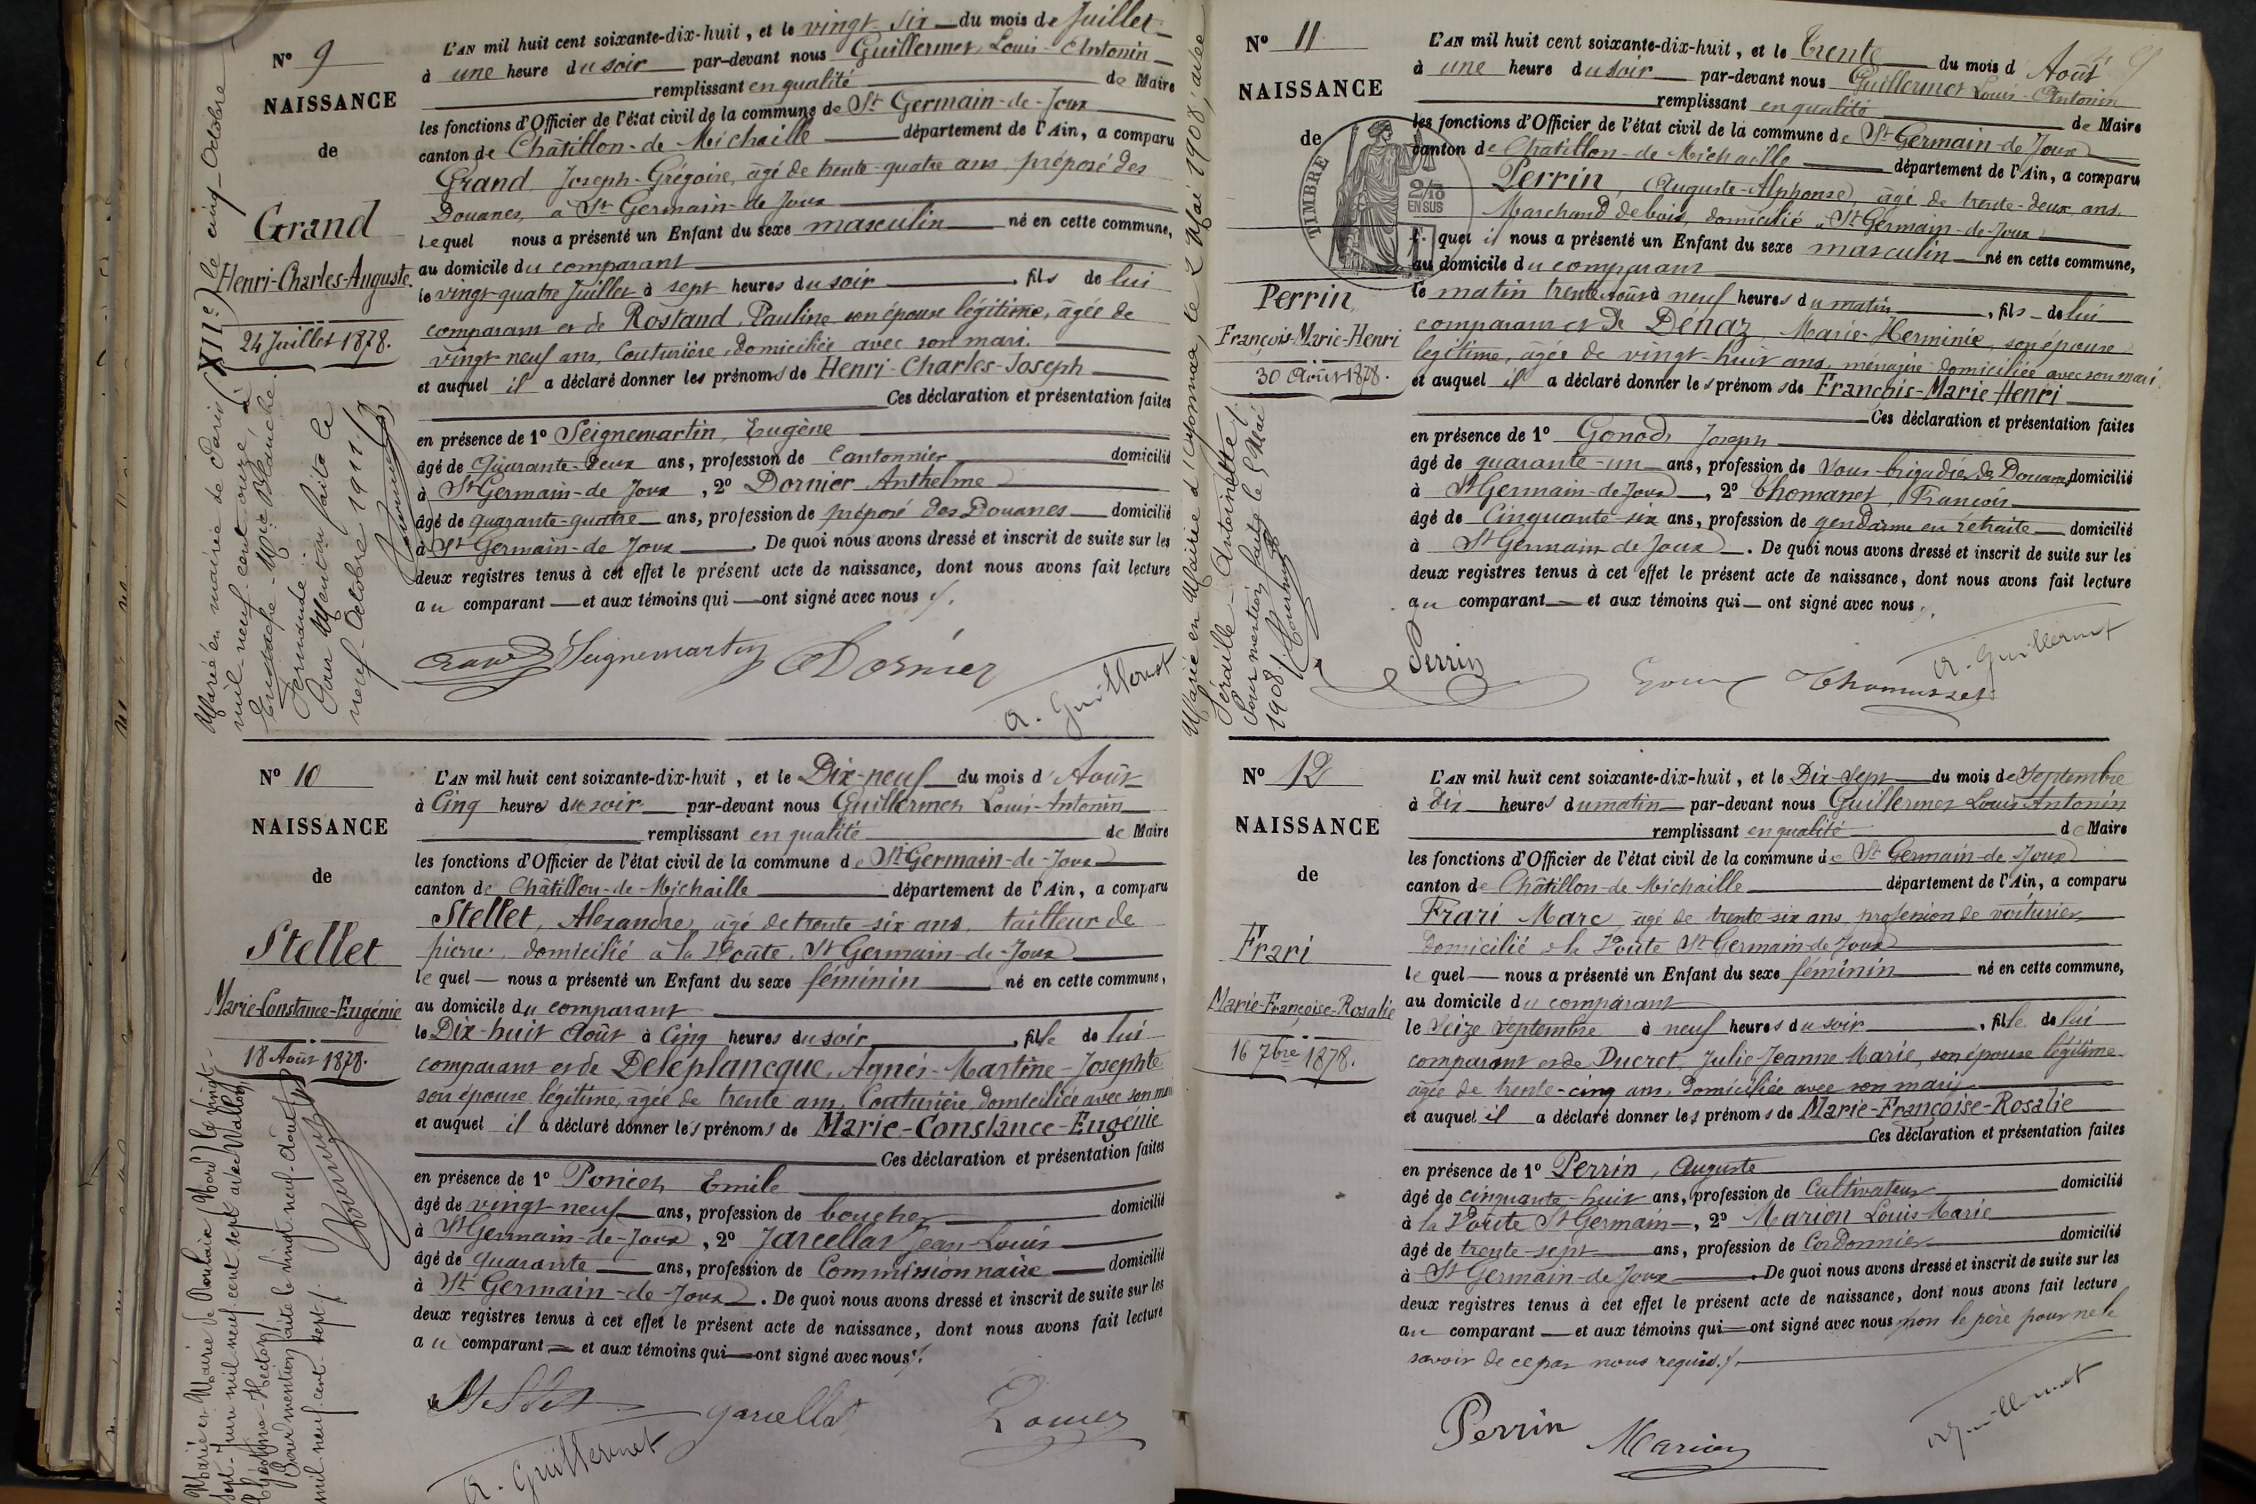 N° 9
NAISSANCE
de
Grand
Henri-Charles-Auguste.
24 Juillet 1878.
Marié en mairie de Paris (XIIe) le cinq Octobre
mil neuf cent onze, à
Eustache Marie Blanche
Fernande.
Pour Mention faite le
neuf Octobre 1911.
L'AN mil huit cent soixante-dix-huit, et le vingt-six du mois de Juillet
à une heure du soir par-devant nous Guillermet, Louis-Antonin
remplissant en qualité de Maire
les fonctions d'Officier de l'état civil de la commune de St Germain-de-Joux
canton de Châtillon-de-Michaille département de l'Ain, a comparu
Grand Joseph-Grégoire, âgé de trente-quatre ans préposé des
Douanes, à St Germain-de-Joux
lequel nous a présenté un Enfant du sexe masculin né en cette commune,
au domicile du comparant
le vingt-quatre Juillet à sept heures du soir, fils de lui
comparant et de Rostand, Pauline son épouse légitime, âgée de
vingt neuf ans, Couturière, domiciliée avec son mari.
et auquel il a déclaré donner les prénoms de Henri-Charles-Joseph
Ces déclaration et présentation faites
en présence de 1° Seignemartin, Eugène
âgé de Quarante-deux ans, profession de Cantonnier domicilié
à St Germain-de Joux, 2° Dornier Anthelme
âgé de quarante-quatre ans, profession de préposé des Douanes domicilié
à St Germain-de Joux. De quoi nous avons dressé et inscrit de suite sur les
deux registres tenus à cet effet le présent acte de naissance, dont nous avons fait lecture
au comparant et aux témoins qui ont signé avec nous ./.
Seignemartin Dornier
A. Guillermet
N° 10
NAISSANCE
de
Stellet
Marie-Constance-Eugénie
18 Août 1878.
Mariée en Mairie de Roubaix (Nord) le vingt-
sept Juin mil neuf cent sept avec Wallon
Hector
Pour mention faite le vingt neuf Août
mil neuf cent sept ./.
L'AN mil huit cent soixante-dix-huit, et le Dix-neuf du mois d'Août
à Cinq heures du soir par-devant nous Guillermet Louis-Antonin
remplissant en qualité de Maire
les fonctions d'Officier de l'état civil de la commune de St Germain-de-Joux
canton de Châtillon-de-Michaille département de l'Ain, a comparu
Stellet, Alexandre, âgé de trente-six ans, tailleur de
pierre, domicilié à la Voûte, St Germain-de-Joux
lequel nous a présenté un Enfant du sexe féminin né en cette commune,
au domicile du comparant
le Dix-huit Août à Cinq heures du soir, fille de lui
comparant et de Deleplancque, Agnès-Martine-Josephte
son épouse légitime, âgée de trente ans, Couturière, domiciliée avec son mari
et auquel il a déclaré donner les prénoms de Marie-Constance-Eugénie
Ces déclaration et présentation faites
en présence de 1° Poncet, Emile
âgé de vingt neuf ans, profession de boucher domicilié
à St Germain-de-Joux, 2° Jarcellat Jean-Louis
âgé de quarante ans, profession de Commissionnaire domicilié
à St Germain-de-Joux. De quoi nous avons dressé et inscrit de suite sur les
deux registres tenus à cet effet le présent acte de naissance, dont nous avons fait lecture
au comparant et aux témoins qui ont signé avec nous ./.
Stellet Jarcellat
A. Guillermet
N° 11
NAISSANCE
de
TIMBRE
2/10
EN SUS
Perrin
François-Marie-Henri
30 Août 1878.
Marié en Mairie d'Oyonnax, le 2 Mai 1908, avec
Antoinette ./.
Pour mention faite le 5 Mai
1908 ./.
L'AN mil huit cent soixante-dix-huit, et le trente du mois d'Août
à une heure du soir par-devant nous Guillermet Louis-Antonin
remplissant en qualité de Maire
les fonctions d'Officier de l'état civil de la commune de St Germain-de Joux
canton de Châtillon-de-Michaille département de l'Ain, a comparu
Perrin, (Auguste-Alphonse), âgé de trente-deux ans.
Marchand de bois, domicilié à St Germain-de-Joux
lequel il nous a présenté un Enfant du sexe masculin né en cette commune,
au domicile du comparant
le matin trente août à neuf heures du matin, fils de lui
comparant et de Dénaz Marie-Herminie, son épouse
légitime, âgée de vingt-huit ans, ménagère domiciliée avec son mari.
et auquel il a déclaré donner les prénoms de François-Marie-Henri
Ces déclaration et présentation faites
en présence de 1° Gonod, Joseph
âgé de quarante-un ans, profession de Sous-brigadier de Douanes, domicilié
à St Germain-de Joux, 2° Thomasset, François
âgé de Cinquante-six ans, profession de gendarme en retraite domicilié
à St Germain de Joux. De quoi nous avons dressé et inscrit de suite sur les
deux registres tenus à cet effet le présent acte de naissance, dont nous avons fait lecture
au comparant et aux témoins qui ont signé avec nous ./.
Perrin Thomasset
A. Guillermet
N° 12
NAISSANCE
de
Frari
Marie-Françoise-Rosalie
16 7bre 1878.
L'AN mil huit cent soixante-dix-huit, et le Dix-Sept du mois de Septembre
à Dix heures du matin par-devant nous Guillermet Louis Antonin
remplissant en qualité de Maire
les fonctions d'Officier de l'état civil de la commune de St Germain-de Joux
canton de Châtillon-de Michaille département de l'Ain, a comparu
Frari Marc, âgé de trente-six ans, profession de voiturier,
domicilié à la Voûte St Germain-de Joux
lequel nous a présenté un Enfant du sexe féminin né en cette commune,
au domicile du comparant
le Seize Septembre à neuf heures du soir, fille de lui
comparant et de Ducret, Julie Jeanne Marie, son épouse légitime
âgée de trente-cinq ans, Domiciliée avec son mari.
et auquel il a déclaré donner les prénoms de Marie-Françoise-Rosalie
Ces déclaration et présentation faites
en présence de 1° Perrin, Auguste
âgé de cinquante-huit ans, profession de Cultivateur domicilié
à la Voûte St Germain, 2° Marion Louis Marie
âgé de trente-sept ans, profession de Cordonnier domicilié
à St Germain-de Joux. De quoi nous avons dressé et inscrit de suite sur les
deux registres tenus à cet effet le présent acte de naissance, dont nous avons fait lecture
au comparant et aux témoins qui ont signé avec nous non le père pour ne le
savoir de ce par nous requis ./.
Perrin Marion
A. Guillermet